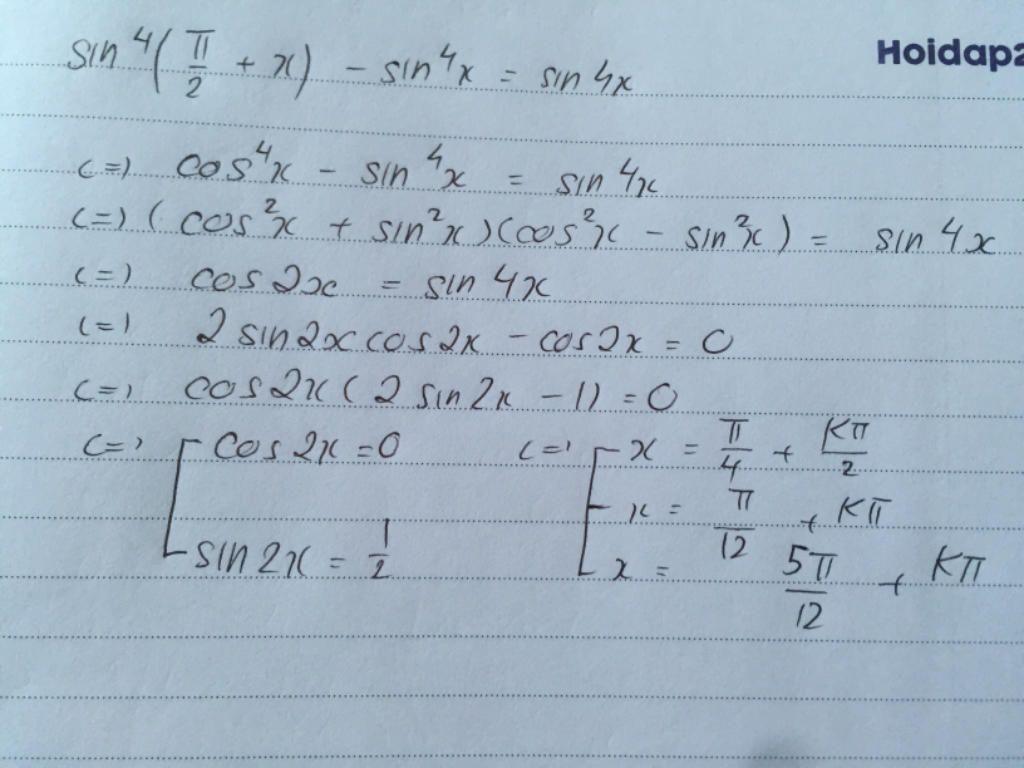 Hoidap2
sin⁴(π/2 + x) - sin⁴x = sin 4x
<=> cos⁴x - sin⁴x = sin 4x
<=> (cos²x + sin²x)(cos²x - sin²x) = sin 4x
<=> cos2x = sin 4x
<=> 2 sin2x cos2x - cos2x = 0
<=> cos2x(2 sin2x - 1) = 0
<=> [ cos 2x = 0 <=> [ x = π/4 + kπ/2
x = π/12 + kπ
sin 2x = 1/2 x = 5π/12 + kπ